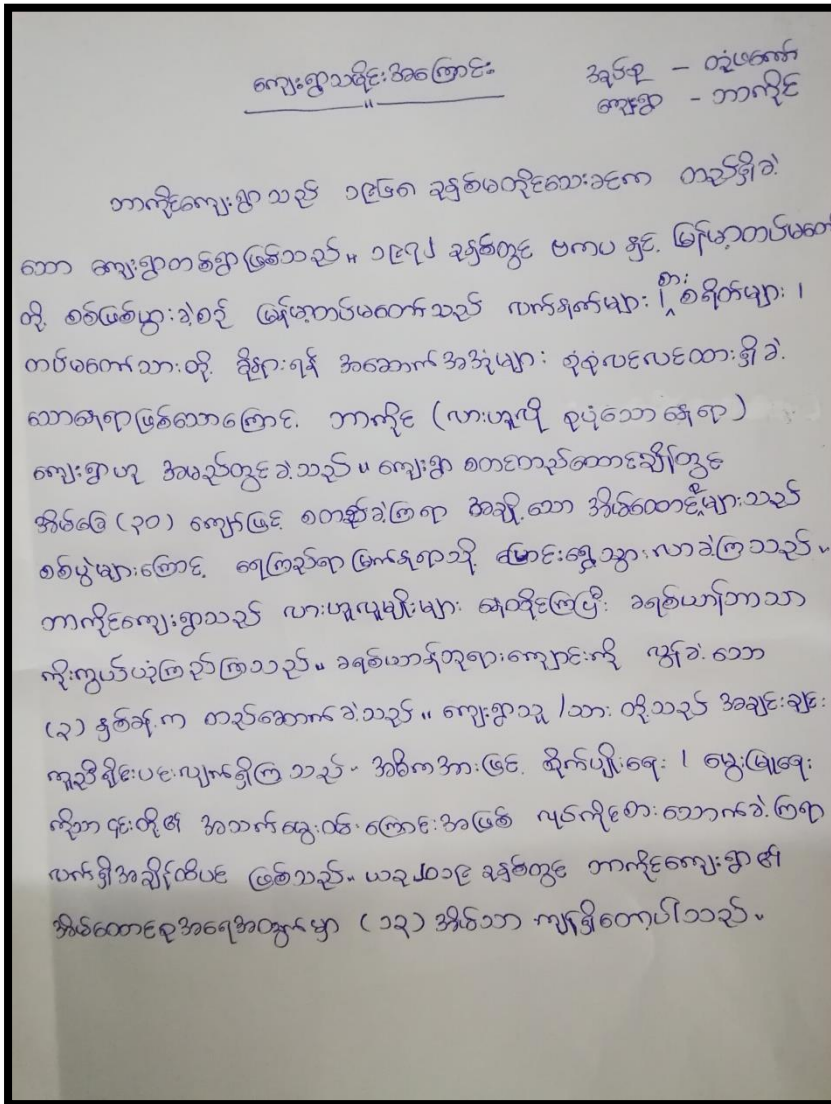 ကျေးရွာသမိုင်းအကြောင်း
အုပ်စု - တုံမတော်
ကျေးရွာ - ဘာကိုင်
ဘာကိုင်ကျေးရွာသည် ၁၉၆၈ ခုနှစ်မတိုင်သေးခင်က တည်ရှိခဲ့
သော ကျေးရွာတစ်ရွာဖြစ်သည်။ ၁၉၇၂ ခုနှစ်တွင် ဗကပ နှင့် မြန်မာ့တပ်မတော်
တို့ စစ်ဖြစ်ပွားခဲ့စဉ် မြန်မာ့တပ်မတော်သည် လက်နက်များ၊ စားစရိတ်များ၊
တပ်မတော်သားတို့ ခိုနားရန် အဆောက်အအုံများ စုံစုံလင်လင်ထားရှိခဲ့
သောနေရာဖြစ်သောကြောင့် ဘာကိုင် (လားဟူလို စုပုံသောနေရာ)
ကျေးရွာဟု အမည်တွင်ခဲ့သည်။ ကျေးရွာ စတင်တည်ထောင်ချိန်တွင်
အိမ်ခြေ (၃၀) ကျော်ဖြင့် စတည်ခဲ့ကြရာ အချို့သော အိမ်ထောင်စုများသည်
စစ်ပွဲများကြောင့် ရေကြည်ရာ မြက်နုရာသို့ ပြောင်းရွှေ့သွားလာခဲ့ကြသည်။
ဘာကိုင်ကျေးရွာသည် လားဟူလူမျိုးများ နေထိုင်ကြပြီး ခရစ်ယာန်ဘာသာ
ကိုးကွယ်ယုံကြည်ကြသည်။ ခရစ်ယာန်ဘုရားကျောင်းကို လွန်ခဲ့သော
(၃) နှစ်ခန့်က တည်ဆောက်ခဲ့သည်။ ကျေးရွာသူ/သား တို့သည် အချင်းချင်း
ကူညီရိုင်းပင်းလျက်ရှိကြသည်။ အဓိကအားဖြင့် စိုက်ပျိုးရေး၊ မွေးမြူရေး
ကိုသာ ၎င်းတို့၏ အသက်မွေးဝမ်းကြောင်းအဖြစ် လုပ်ကိုင်စားသောက်ခဲ့ကြရာ
လက်ရှိအချိန်ထိပင် ဖြစ်သည်။ ယခု ၂၀၁၉ ခုနှစ်တွင် ဘာကိုင်ကျေးရွာ၏
အိမ်ထောင်စုအရေအတွက်မှာ (၁၃) အိမ်သာ ကျန်ရှိတော့ပါသည်။